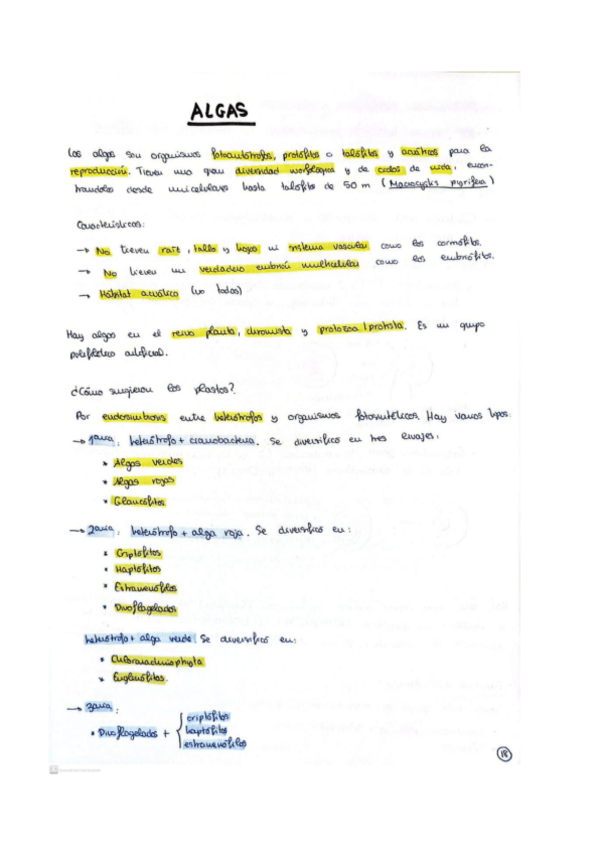 ALGAS
Las algas son organismos fotoautótrofos, protófitos o talófitos y acuáticos para la
reproducción. Tienen una gran diversidad morfológica y de ciclos de vida, encon-
trándolos desde unicelulares hasta talófitos de 50 m (Macrocystis pyrifera)
Características:
→ No tienen raíz, tallo y hojas ni sistema vascular como los cormófitos.
→ No tienen un verdadero embrión multicelular como los embriófitos.
→ Hábitat acuático (no todas)
Hay algas en el reino planta, chromista y protozoa / protista. Es un grupo
polifilético artificial.
¿Cómo surgieron los plastos?
Por endosimbiosis entre heterótrofos y organismos fotosintéticos. Hay varios tipos.
→ 1aria: heterótrofo + cianobacteria. Se diversificó en tres linajes:
* Algas verdes
* Algas rojas
* Glaucófitos
→ 2aria: heterótrofo + alga roja. Se diversificó en:
* Criptófitos
* Haptófitos
* Estramenófilos
* Dinoflagelados
heterótrofo + alga verde. Se diversificó en:
* Chlorarachniophyta
* Euglenófitas.
→ 3aria:
• Dinoflagelados + { criptófitos
haptófitos
estramenófilos
18